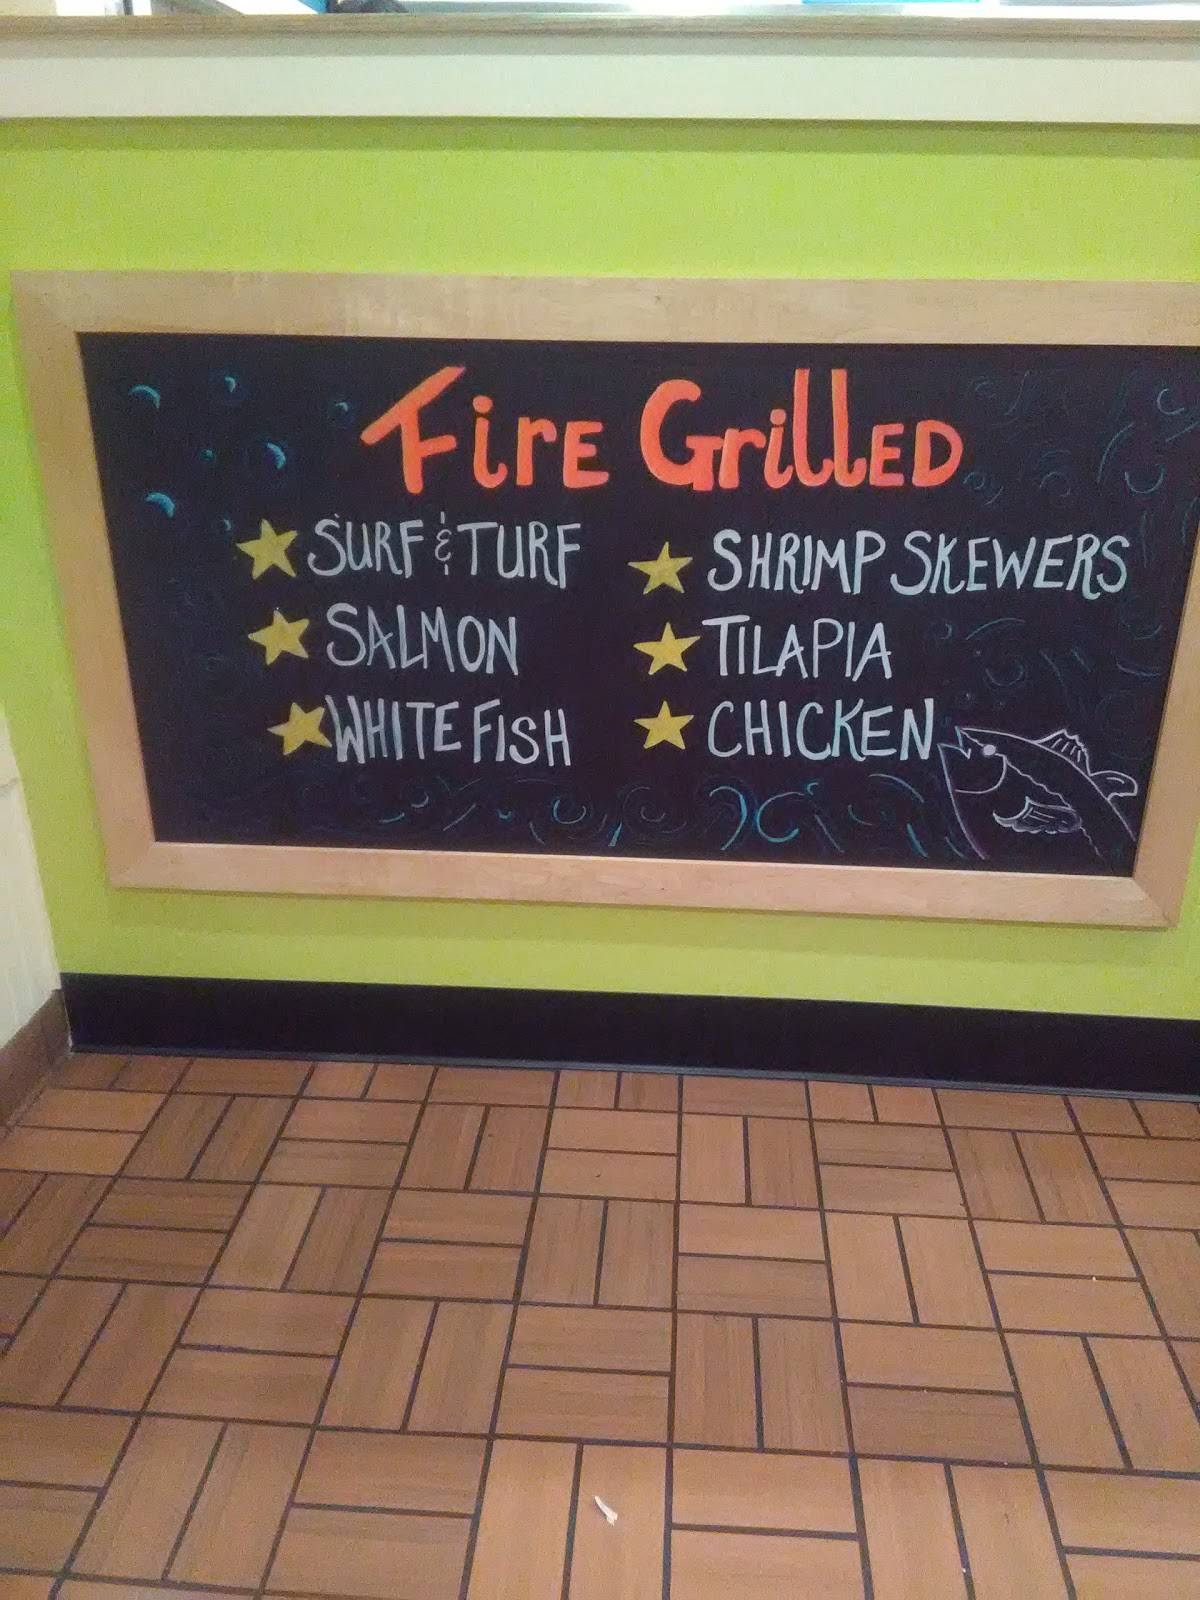 FirE GrillED
SURF & TURF
SALMON
WHITE FISH
SHRIMP SKEWERS
TILAPIA
CHICKEN